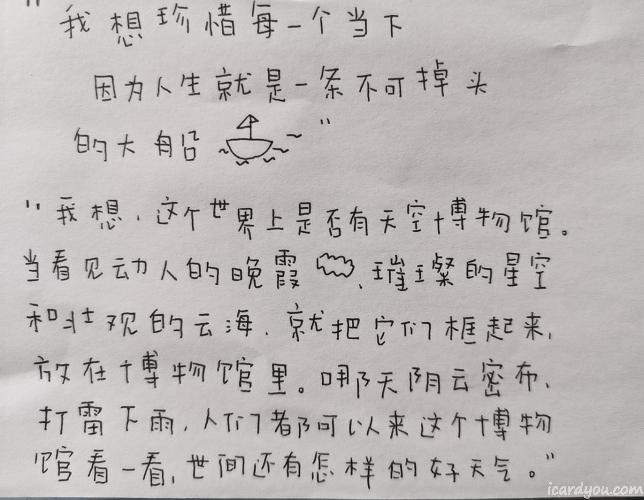 "我想珍惜每一个当下
因为人生就是一条不可掉头
的大船"
"我想,这个世界上是否有天空博物馆。
当看见动人的晚霞、璀璨的星空
和壮观的云海,就把它们框起来,
放在博物馆里。哪天阴云密布,
打雷下雨,人们都可以来这个博物
馆看一看,世间还有怎样的好天气。"
icardyou.com